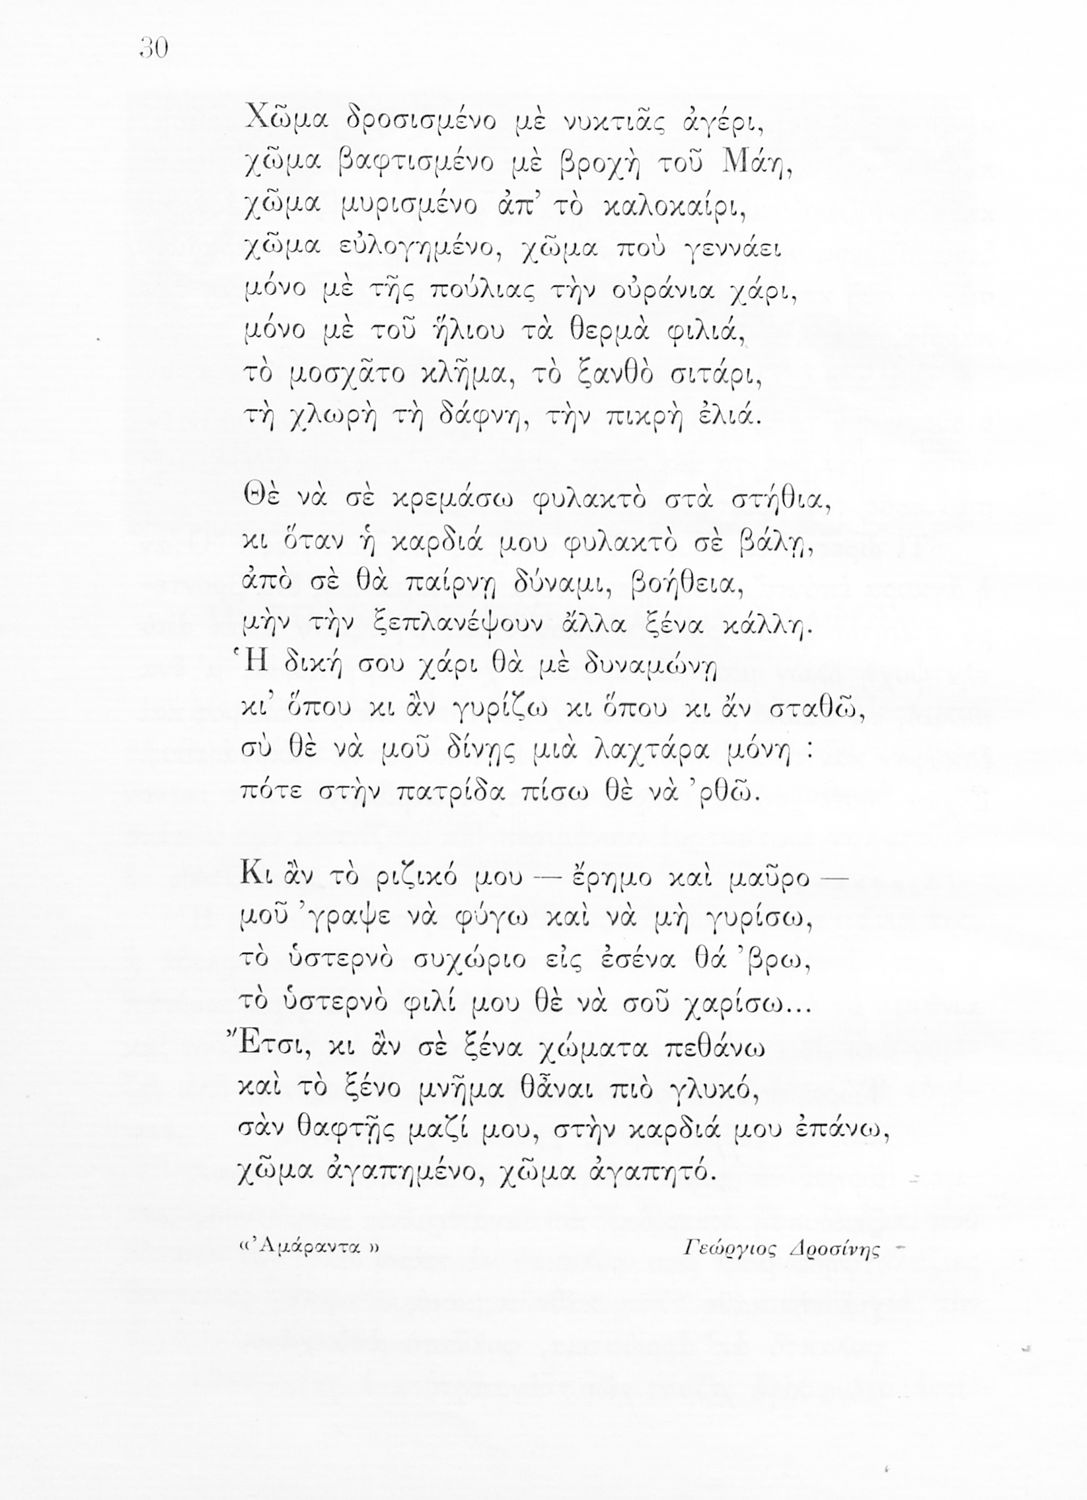 30
Χῶμα δροσισμένο μὲ νυκτιᾶς ἀγέρι,
χῶμα βαφτισμένο μὲ βροχὴ τοῦ Μάη,
χῶμα μυρισμένο ἀπ’ τὸ καλοκαίρι,
χῶμα εὐλογημένο, χῶμα ποὺ γεννάει
μόνο μὲ τῆς πούλιας τὴν οὐράνια χάρι,
μόνο μὲ τοῦ ἥλιου τὰ θερμὰ φιλιά,
τὸ μοσχᾶτο κλῆμα, τὸ ξανθὸ σιτάρι,
τὴ χλωρὴ τὴ δάφνη, τὴν πικρὴ ἐλιά.
Θὲ νὰ σὲ κρεμάσω φυλακτὸ στὰ στήθια,
κι ὅταν ἡ καρδιά μου φυλακτὸ σὲ βάλῃ,
ἀπὸ σὲ θὰ παίρνῃ δύναμι, βοήθεια,
μὴν τὴν ξεπλανέψουν ἄλλα ξένα κάλλη.
Ἡ δική σου χάρι θὰ μὲ δυναμώνῃ
κι’ ὅπου κι ἂν γυρίζω κι ὅπου κι ἂν σταθῶ,
σὺ θὲ νὰ μοῦ δίνῃς μιὰ λαχτάρα μόνη :
πότε στὴν πατρίδα πίσω θὲ νὰ ’ρθῶ.
Κι ἂν τὸ ριζικό μου — ἔρημο καὶ μαῦρο —
μοῦ ’γραψε νὰ φύγω καὶ νὰ μὴ γυρίσω,
τὸ ὑστερνὸ συχώριο εἰς ἐσένα θά ’βρω,
τὸ ὑστερνὸ φιλί μου θὲ νὰ σοῦ χαρίσω...
Ἔτσι, κι ἂν σὲ ξένα χώματα πεθάνω
καὶ τὸ ξένο μνῆμα θἆναι πιὸ γλυκό,
σὰν θαφτῇς μαζί μου, στὴν καρδιά μου ἐπάνω,
χῶμα ἀγαπημένο, χῶμα ἀγαπητό.
«Ἀμάραντα » Γεώργιος Δροσίνης